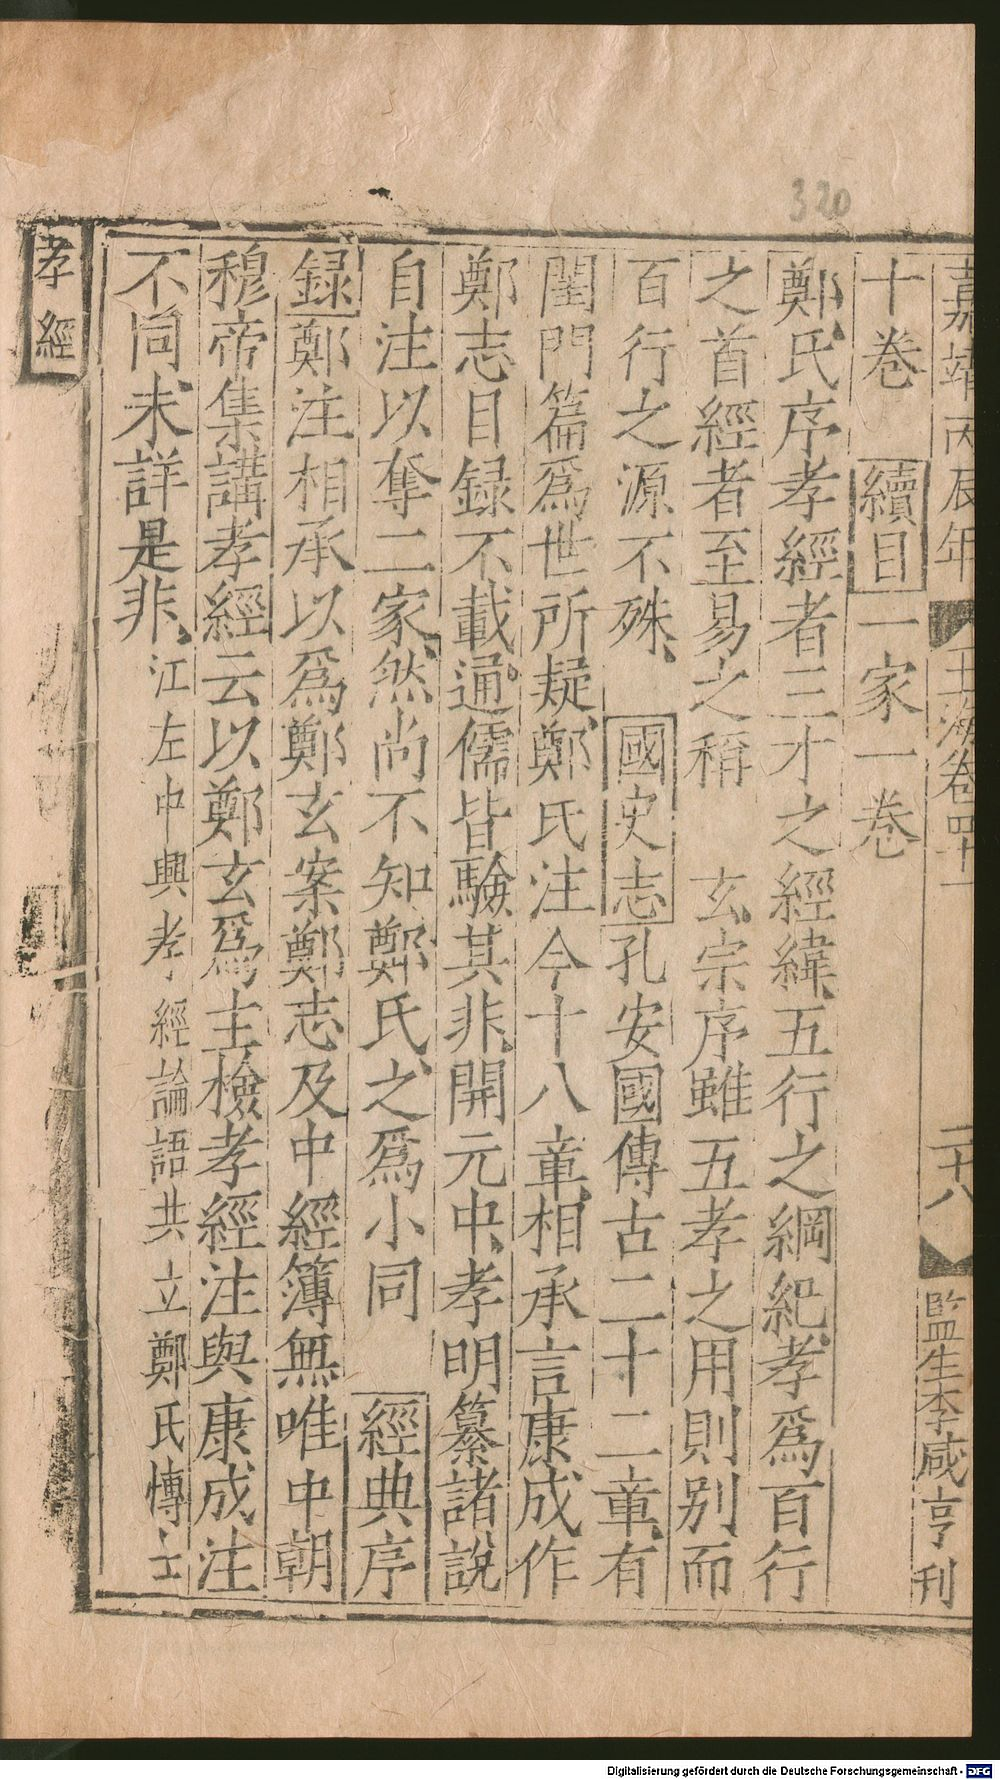 320
嘉靖丙辰年 玉海卷四十一 二十八 監生李咸亨刊
十卷 續目一家一卷
鄭氏序孝經者三才之經緯五行之綱紀孝爲百行
之首經者至易之稱 玄宗序雖五孝之用則别而
百行之源不殊 國史志孔安國傳古二十二章有
閨門篇爲世所疑鄭氏注今十八章相承言康成作
鄭志目録不載通儒皆驗其非開元中孝明纂諸說
自注以奪二家然尚不知鄭氏之爲小同 經典序
録鄭注相承以爲鄭玄案鄭志及中經簿無唯中朝
穆帝集講孝經云以鄭玄爲主檢孝經注與康成注
不同未詳是非江左中興孝經論語共立鄭氏愽士
孝經
Digitalisierung gefördert durch die Deutsche Forschungsgemeinschaft - DFG